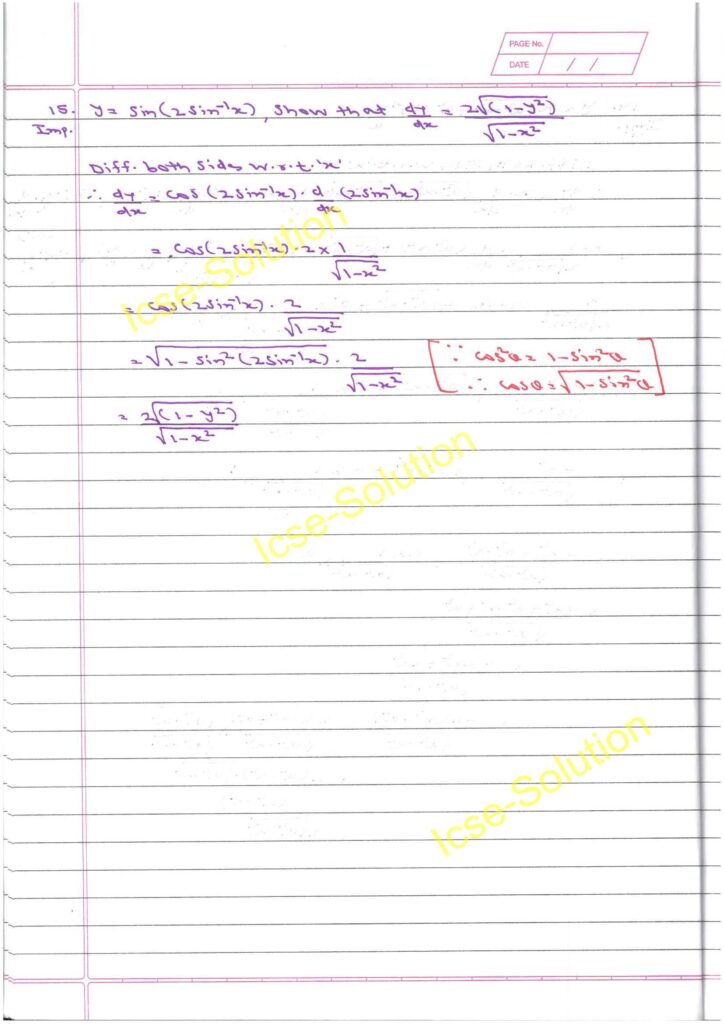 PAGE No.
DATE / /
15. y = sin(2sin⁻¹x), show that dy/dx = 2√(1-y²)/√1-x²
Imp.
Diff. both sides w.r.t. 'x'
∴ dy/dx = cos (2sin⁻¹x) · d/dx (2sin⁻¹x)
= cos(2sin⁻¹x) · 2 × 1/√1-x²
= cos(2sin⁻¹x) · 2/√1-x²
= √1-sin²(2sin⁻¹x) · 2/√1-x² [∵ cos²θ = 1-sin²θ
∴ cosθ = √1-sin²θ]
= 2√(1-y²)/√1-x²
Icse-Solution
Icse-Solution
Icse-Solution